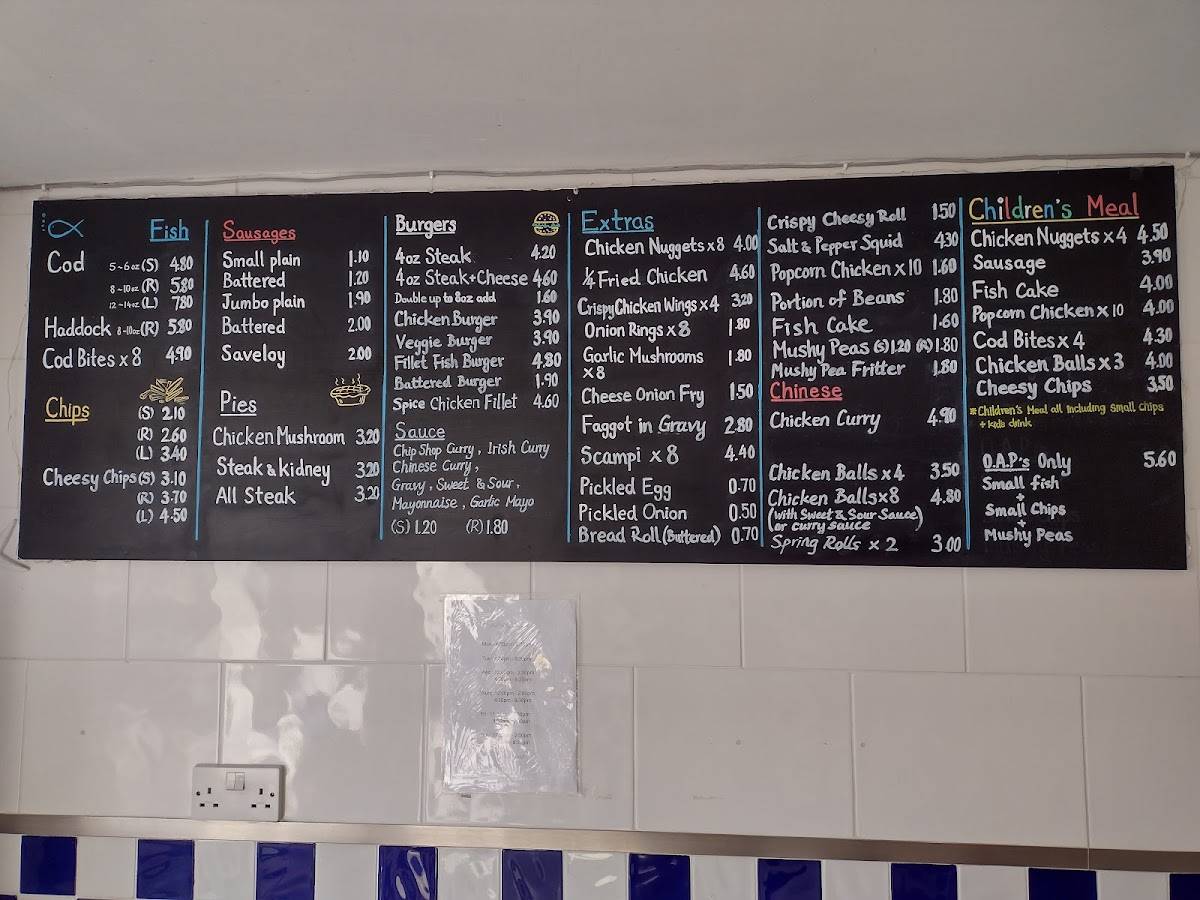 Fish
Cod 5-6oz (S) 4.80
8-10oz (R) 5.80
12-14oz (L) 7.80
Haddock 8-10oz (R) 5.80
Cod Bites x 8 4.90
Chips
(S) 2.10
(R) 2.60
(L) 3.40
Cheesy Chips (S) 3.10
(R) 3.70
(L) 4.50
Sausages
Small plain 1.10
Battered 1.20
Jumbo plain 1.90
Battered 2.00
Saveloy 2.00
Pies
Chicken Mushroom 3.20
Steak & kidney 3.20
All Steak 3.20
Burgers
4oz Steak 4.20
4oz Steak+Cheese 4.60
Double up to 8oz add 1.60
Chicken Burger 3.90
Veggie Burger 3.90
Fillet Fish Burger 4.80
Battered Burger 1.90
Spice Chicken Fillet 4.60
Sauce
Chip Shop Curry, Irish Curry
Chinese Curry,
Gravy, Sweet & Sour,
Mayonnaise, Garlic Mayo
(S) 1.20 (R) 1.80
Extras
Chicken Nuggets x 8 4.00
1/4 Fried Chicken 4.60
Crispy Chicken Wings x 4 3.20
Onion Rings x 8 1.80
Garlic Mushrooms 1.80
x 8
Cheese Onion Fry 1.50
Faggot in Gravy 2.80
Scampi x 8 4.40
Pickled Egg 0.70
Pickled Onion 0.50
Bread Roll (Buttered) 0.70
Crispy Cheesy Roll 1.50
Salt & Pepper Squid 4.30
Popcorn Chicken x 10 1.60
Portion of Beans 1.80
Fish Cake 1.60
Mushy Peas (S) 1.20 (R) 1.80
Mushy Pea Fritter 1.80
Chinese
Chicken Curry 4.90
Chicken Balls x 4 3.50
Chicken Balls x 8 4.80
(with Sweet & Sour Sauce)
(or curry sauce
Spring Rolls x 2 3.00
Children's Meal
Chicken Nuggets x 4 4.50
Sausage 3.90
Fish Cake 4.00
Popcorn Chicken x 10 4.00
Cod Bites x 4 4.30
Chicken Balls x 3 4.00
Cheesy Chips 3.50
*Children's Meal all including Small Chips
+ kids drink
O.A.P's Only 5.60
Small fish
+
Small Chips
+
Mushy Peas